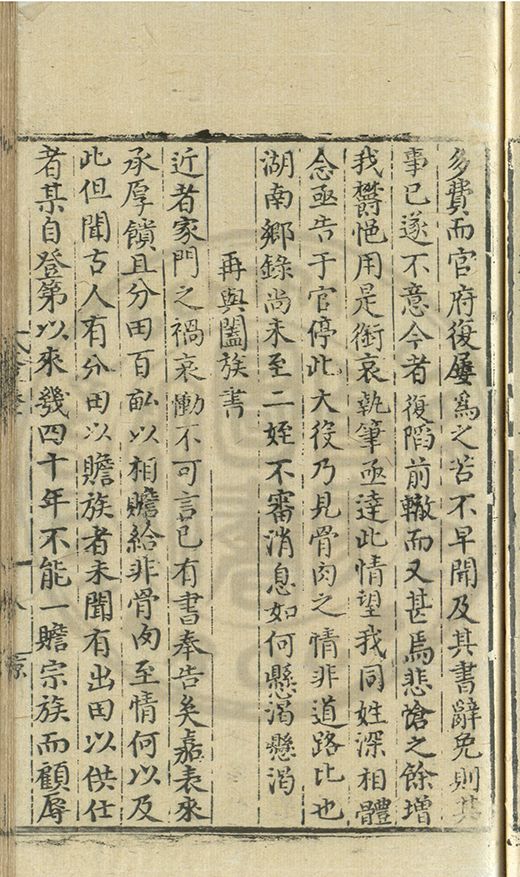 多費而官府復屢爲之苦不早聞及其書辭免則其
事已遂不意今者復蹈前轍而又甚焉悲愴之餘增
我欝悒用是銜哀執筆亟達此情望我同姓深相體
念亟告于官停此大役乃見骨肉之情非道路比也
湖南鄉錄尚未至二姪不審消息如何懸渴懸渴
再與闔族書
近者家門之禍哀慟不可言已有書奉告矣嘉表來
承厚饋且分田百畝以相贍給非骨肉至情何以及
此但聞古人有分田以贍族者未聞有出田以供仕
者某自登第以來幾四十年不能一贍宗族而顧辱